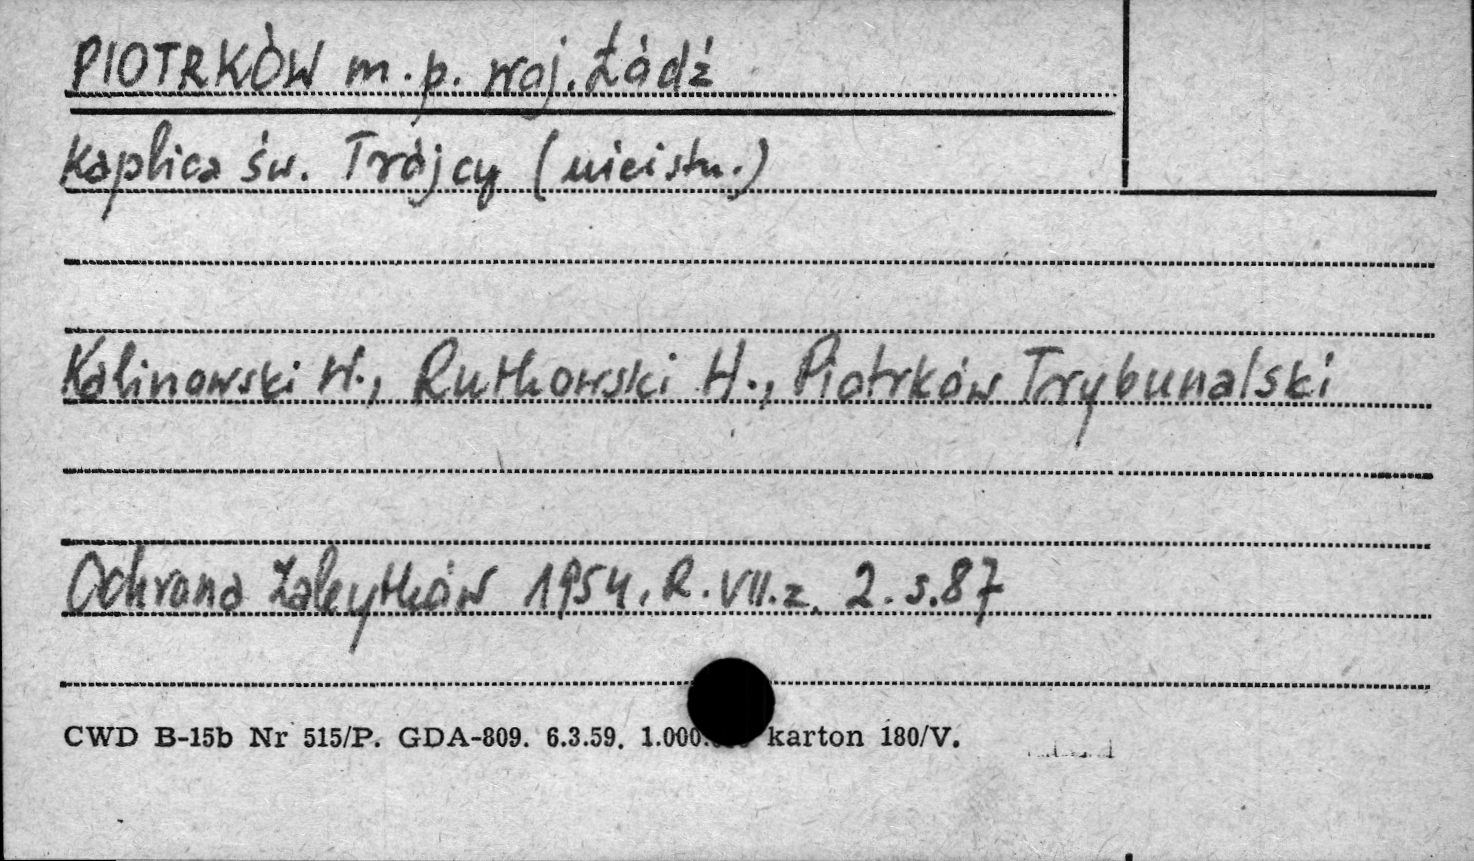 PIOTRKÓW m. p. woj. Łódź
Kaplica św. Trójcy (nieistn.)
Kalinowski W., Rutkowski H., Piotrków Trybunalski
Ochrona Zabytków 1954. R. VII. z. 2. s. 87
CWD B-15b Nr 515/P. GDA-809. 6.3.59. 1.000. karton 180/V.